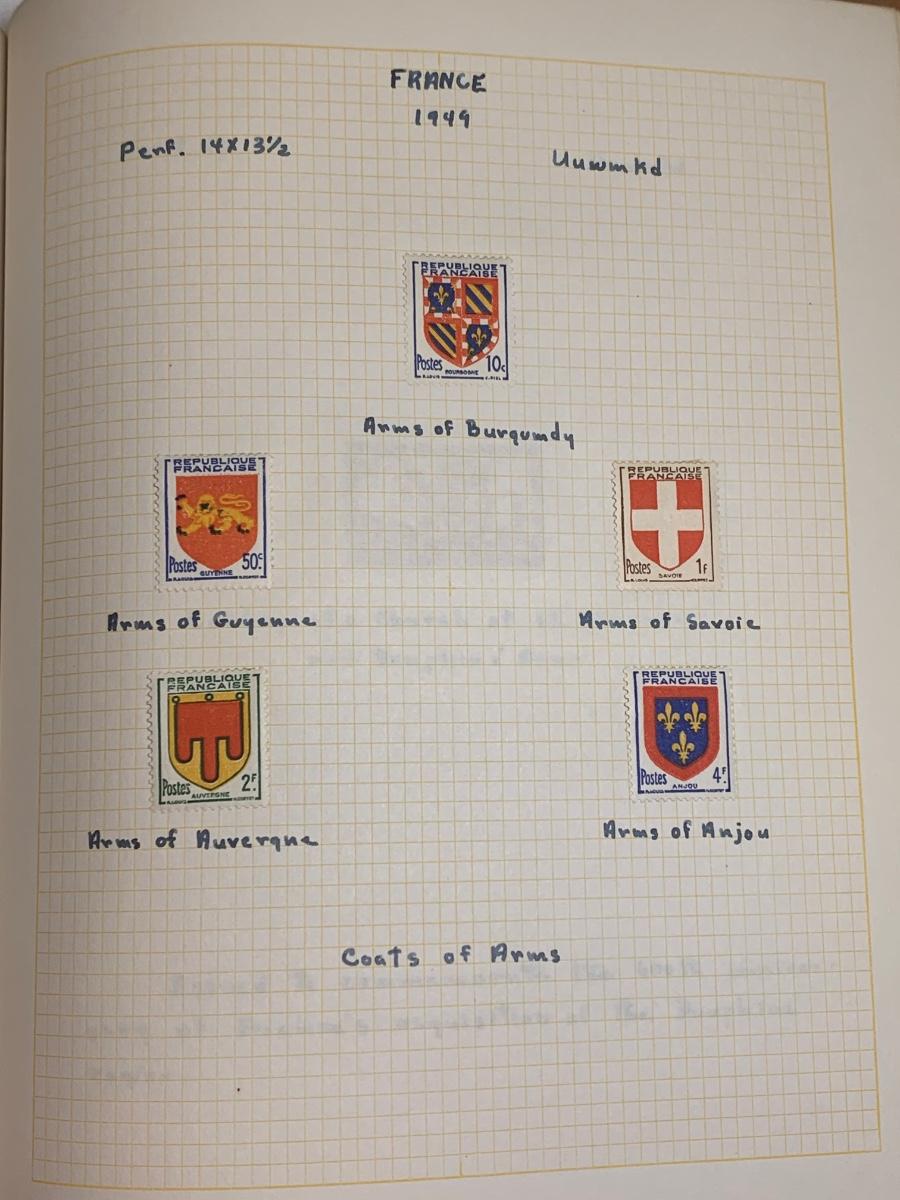 FRANCE
1949
Perf. 14X13½
Unwmkd
REPUBLIQUE
FRANCAISE
Postes 10c
BOURGOGNE
Arms of Burgumdy
REPUBLIQUE
FRANCAISE
Postes 50c
GUYENNE
REPUBLIQUE
FRANCAISE
Postes 1F
SAVOIE
Arms of Guyenne
Arms of Savoie
REPUBLIQUE
FRANCAISE
Postes 2F
AUVERGNE
REPUBLIQUE
FRANCAISE
Postes 4F
ANJOU
Arms of Auvergne
Arms of Anjou
Coats of Arms